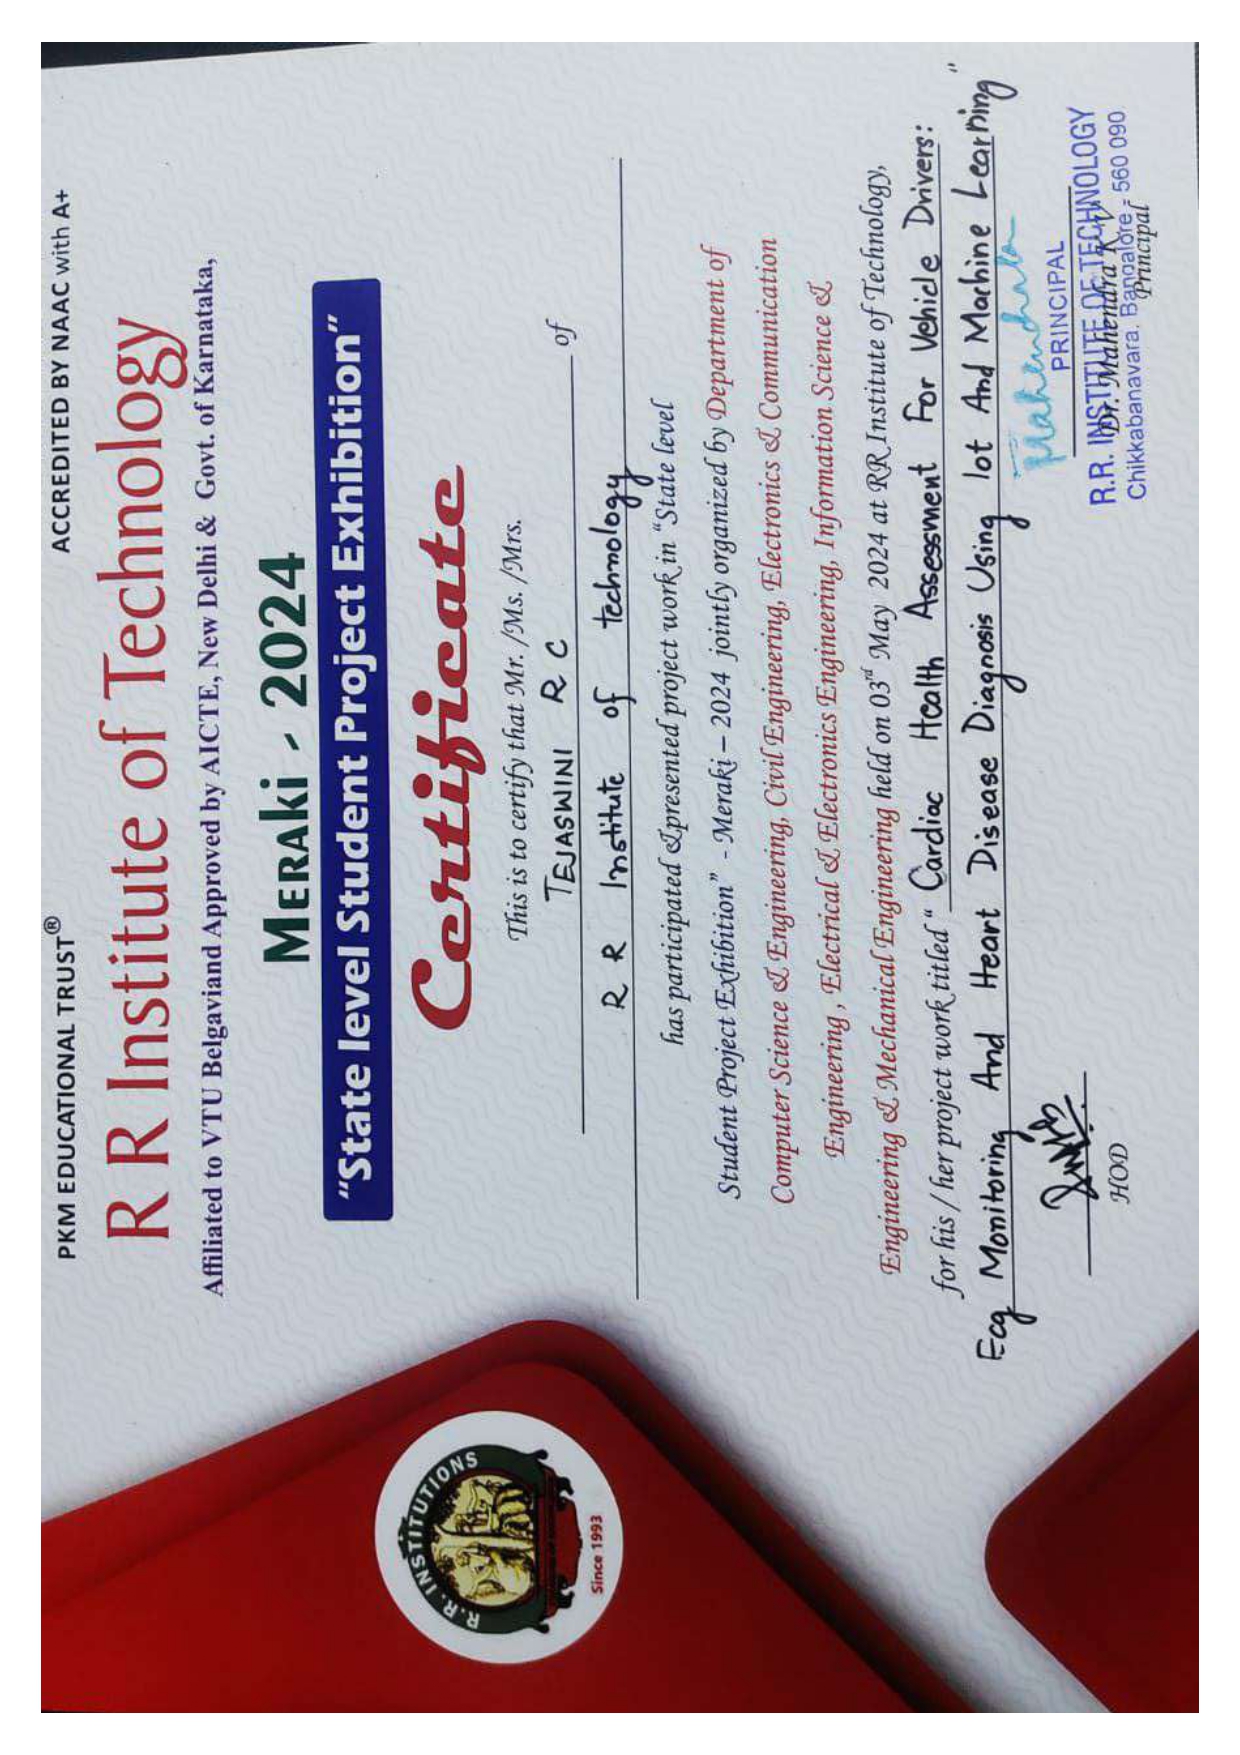 PKM EDUCATIONAL TRUST® ACCREDITED BY NAAC with A+
R R Institute of Technology
Affiliated to VTU Belgaviand Approved by AICTE, New Delhi & Govt. of Karnataka,
MERAki - 2024
"State level Student Project Exhibition"
Certificate
This is to certify that Mr. /Ms. /Mrs.
TEJASWINI R C of
R R Institute of technology
has participated & presented project work in "State level
Student Project Exhibition" - Meraki – 2024 jointly organized by Department of
Computer Science & Engineering, Civil Engineering, Electronics & Communication
Engineering , Electrical & Electronics Engineering, Information Science &
Engineering & Mechanical Engineering held on 03rd May 2024 at RR Institute of Technology,
for his / her project work titled " Cardiac Health Assessment For Vehicle Drivers:
Ecg Monitoring And Heart Disease Diagnosis Using Iot And Machine Learning"
Mahendrakr
PRINCIPAL
R.R. INSTITUTE OF TECHNOLOGY
Dr. Mahendra K V
Chikkabanavara, Bangalore - 560 090.
Principal
HOD
R.R. INSTITUTIONS
Since 1993